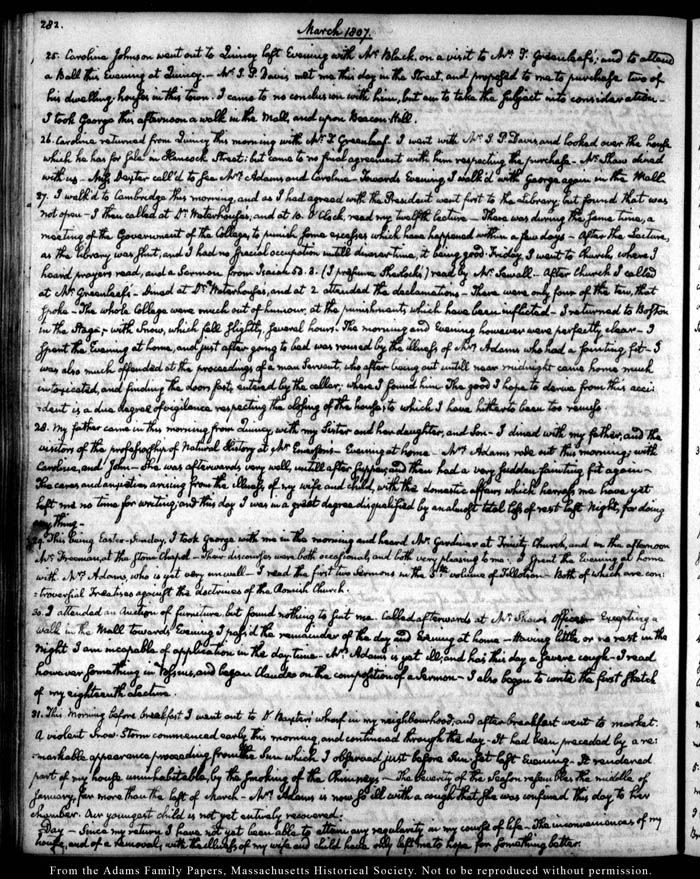 282.
March 1807.
25. Caroline Johnson went out to Quincy last Evening with Mrs Black, on a visit to Mrs T. Greenleaf; and to attend
a Ball this Evening at Quincy.— Mr. I. P. Davis met me this day in the Street, and proposed to me to purchase two of
his dwelling-houses in this town. I came to no conclusion with him, but am to take the subject into consideration—
I took George this afternoon a walk in the Mall, and upon Beacon Hill.
26. Caroline returned from Quincy this morning with Mr T. Greenleaf. I went with Mr I. P. Davis and looked over the house
which he has for sale in Hancock Street: but came to no final agreement with him respecting the purchase— Mr Shaw dined
with us— Miss Dexter call'd to see Mrs Adams and Caroline— Towards Evening I walk'd with George again in the Mall.
27. I walk'd to Cambridge this morning, and as I had agreed with the President went first to the Library; but found that was
not open— I then called at Dr Waterhouse's, and at 10. O'Clock, read my twelfth lecture— There was during the same time, a
meeting of the Government of the College, to punish some excesses which have happened within a few days— After the Lecture,
as the Library was shut, and I had no special occupation untill dinner time, it being good-Friday, I went to Church, where I
heard prayers read, and a Sermon from Isaiah 53. 3. (I presume Sherlock's) read by Mr. Sewall— After Church I called
at Mr. Greenleaf's— Dined at Dr Waterhouse's, and at 2 attended the declamations— There were only four of the ten, that
spoke— The whole College were much out of humour, at the punishments which have been inflicted— I returned to Boston
in the Stage;— with Snow, which fell slightly, several hours. The morning and Evening however were perfectly clear— I
spent the Evening at home, and just after going to bed was roused by the illness of Mrs Adams who had a fainting fit— I
was also much offended at the proceedings of a man Servant, who after being out untill near midnight came home much
intoxicated, and finding the doors fast, entered by the cellar; where I found him. The good I hope to derive from this acci-
-dent is a due degree of vigilance respecting the closing of the house; to which I have hitherto been too remiss.
28. My father came in this morning from Quincy, with my Sister and her daughter, and Son— I dined with my father, and the
visitors of the professorship of Natural History at Mr Emerson's— Evening at home— Mrs Adams rode out this morning; with
Caroline, and John— She was afterwards very well, untill after supper, and then had a very sudden fainting fit again—
The cares and anxieties arising from the illness of my wife and child, with the domestic affairs which harrass me have yet
left me no time for writing; and this day I was in a great degree disqualified by an almost total loss of rest last Night, for doing
any thing—
29. This being Easter-Sunday, I took George with me in the morning and heard Mr Gardiner at Trinity Church, and in the afternoon
Mr. Freeman, at the Stone Chapel— Their discourses were both occasional, and both very pleasing to me. I spent the Evening at home
with Mrs Adams, who is yet very unwell— I read the first two Sermons in the 5th volume of Tillotson— Both of which are con:
:troversial Treatises against the doctrines of the Romish Church.
30. I attended an Auction of furniture, but found nothing to suit me. Called afterwards at Mr. Shaw's office— Excepting a
walk in the Mall towards Evening I pass'd the remainder of the day and Evening at home— Having little or no rest in the
Night I am incapable of application in the day-time— Mrs Adams is yet ill; and has this day a severe cough— I read
however something in Vossius, and began Claude on the composition of a Sermon— I also began to write the first sketch
of my eighteenth lecture.
31. This Morning before breakfast I went out to Dr Baxter's wharf in my neighbourhood; and after breakfast went to market.
A violent Snow-Storm commenced early this morning, and continued through the day— It had been preceded by a re:
:markable appearance proceeding from the Sun which I observed just before Sun-set last Evening— It rendered
part of my house uninhabitable, by the smoking of the Chimneys— The severity of the Season resembles the middle of
January, far more than the last of March— Mrs Adams is now so ill with a cough that she was confined this day to her
chamber. Our youngest child is not yet entirely recovered.
Day— Since my return I have not yet been able to attain any regularity in my course of life— The inconveniences of my
house, and of a removal, with the illness of my wife and child have only left me to hope for something better.
From the Adams Family Papers, Massachusetts Historical Society. Not to be reproduced without permission.